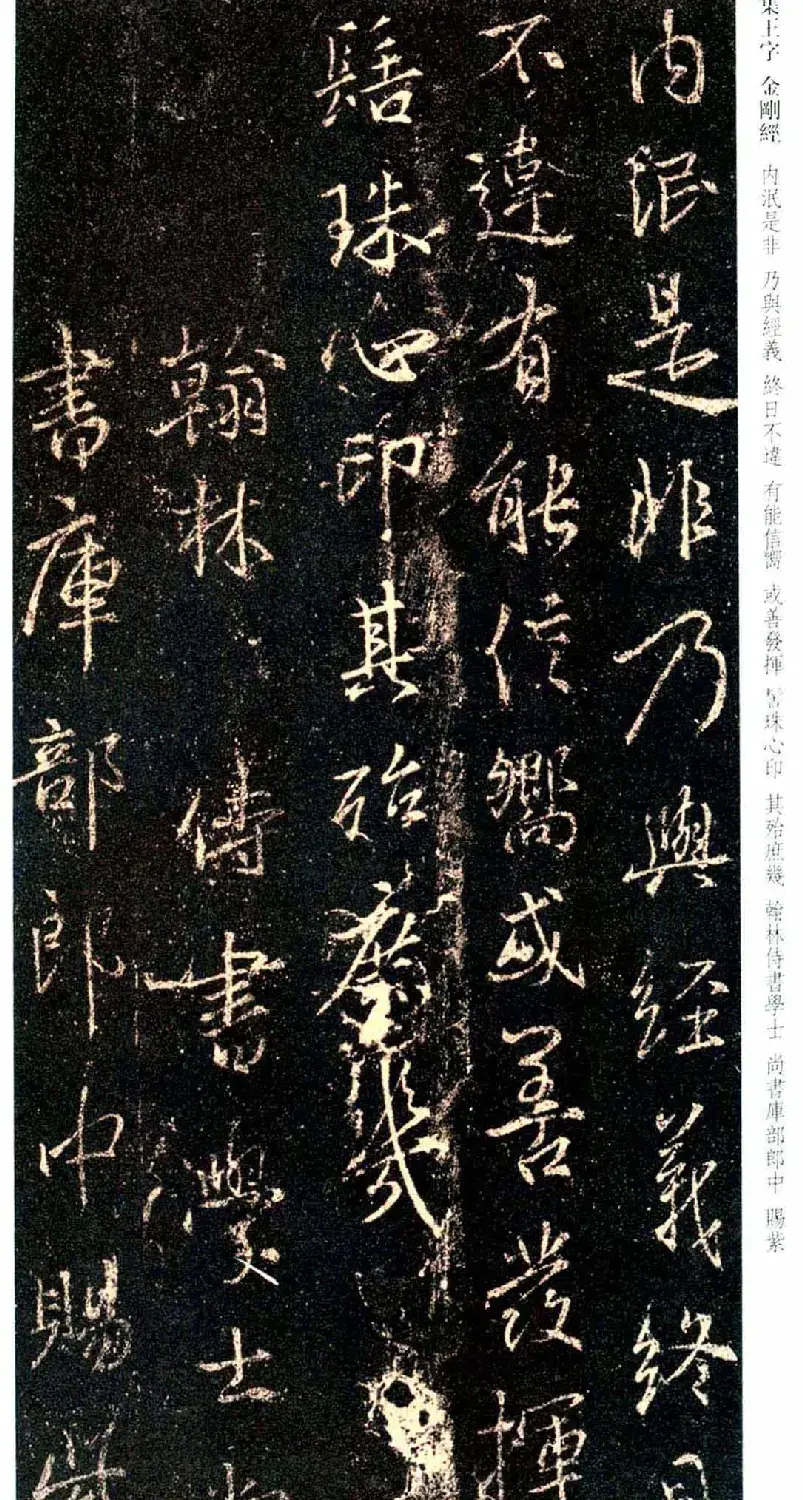 集王字 金剛經 內泯是非 乃與經義 終日不違 有能信嚮 或善發揮 髻珠心印 其殆庶幾 翰林侍書學士 尚書庫部郎中 賜紫
內泯是非乃與經義終日
不違有能信嚮或善發揮
髻珠心印其殆庶幾
翰林侍書學士尚
書庫部郎中賜紫